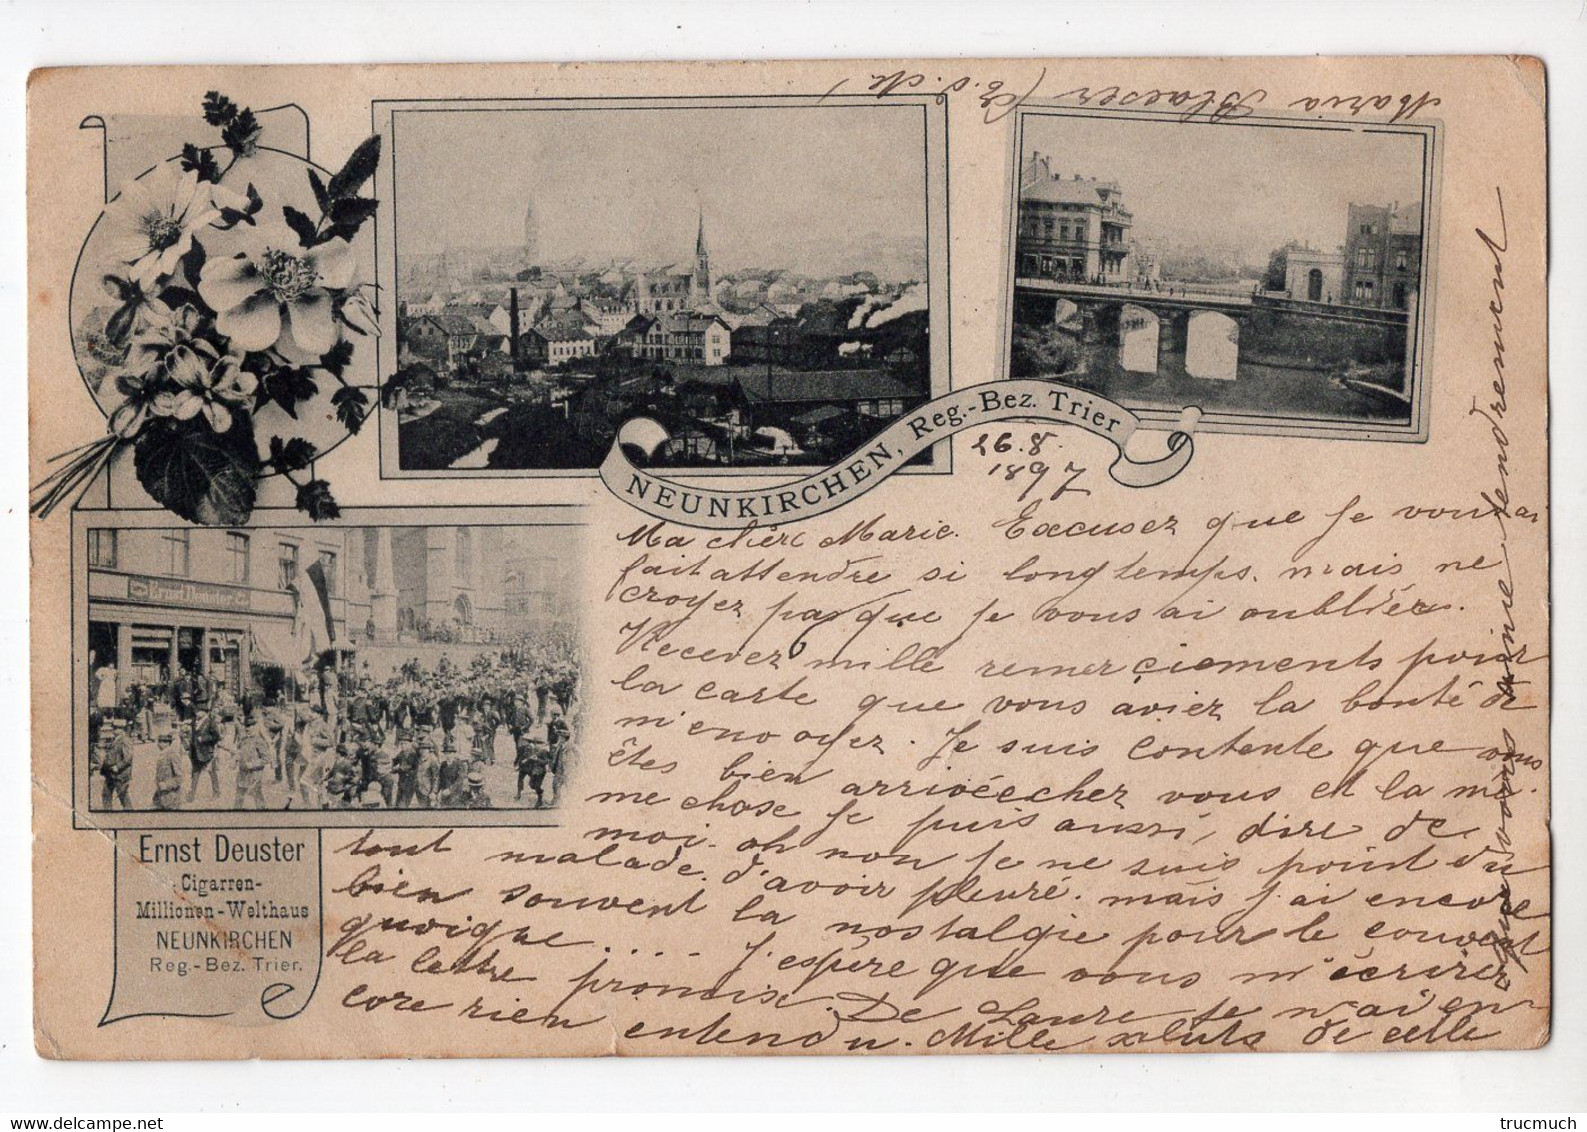 Maria Blaeser
NEUNKIRCHEN, Reg.-Bez. Trier
26.8.
1897
Ernst Deuster
Ma chère Marie. Excusez que je vous ai
fait attendre si longtemps. mais ne
croyez pas que je vous ai oubliée.
Recevez mille remerciements pour
la carte que vous aviez la bonté de
m'envoyez. Je suis contente que vous
êtes bien arrivée chez vous et la mê-
me chose je puis aussi, dire de
moi. oh non je ne suis point du
tout malade, d'avoir pleuré. mais j'ai encore
bien souvent la nostalgie pour le couvent
quoique .... J'espère que vous m'écrirez
la lettre promise. De Laure je n'ai en-
core rien entendu. Mille saluts de celle
qui vous aime tendrement
Ernst Deuster
Cigarren-
Millionen-Welthaus
NEUNKIRCHEN
Reg.-Bez. Trier.
trucmuch